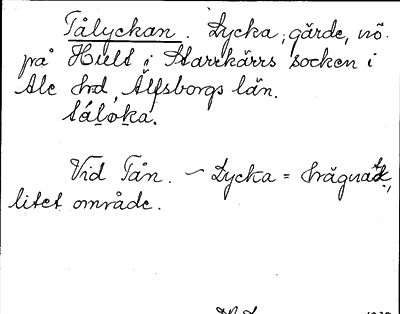 Tålyckan. Lycka, gärde, nö.
på Hult i Starrkärrs socken i
Ale hd, Älfsborgs län.
Vid Tån. – Lycka = hägnat,
litet område.